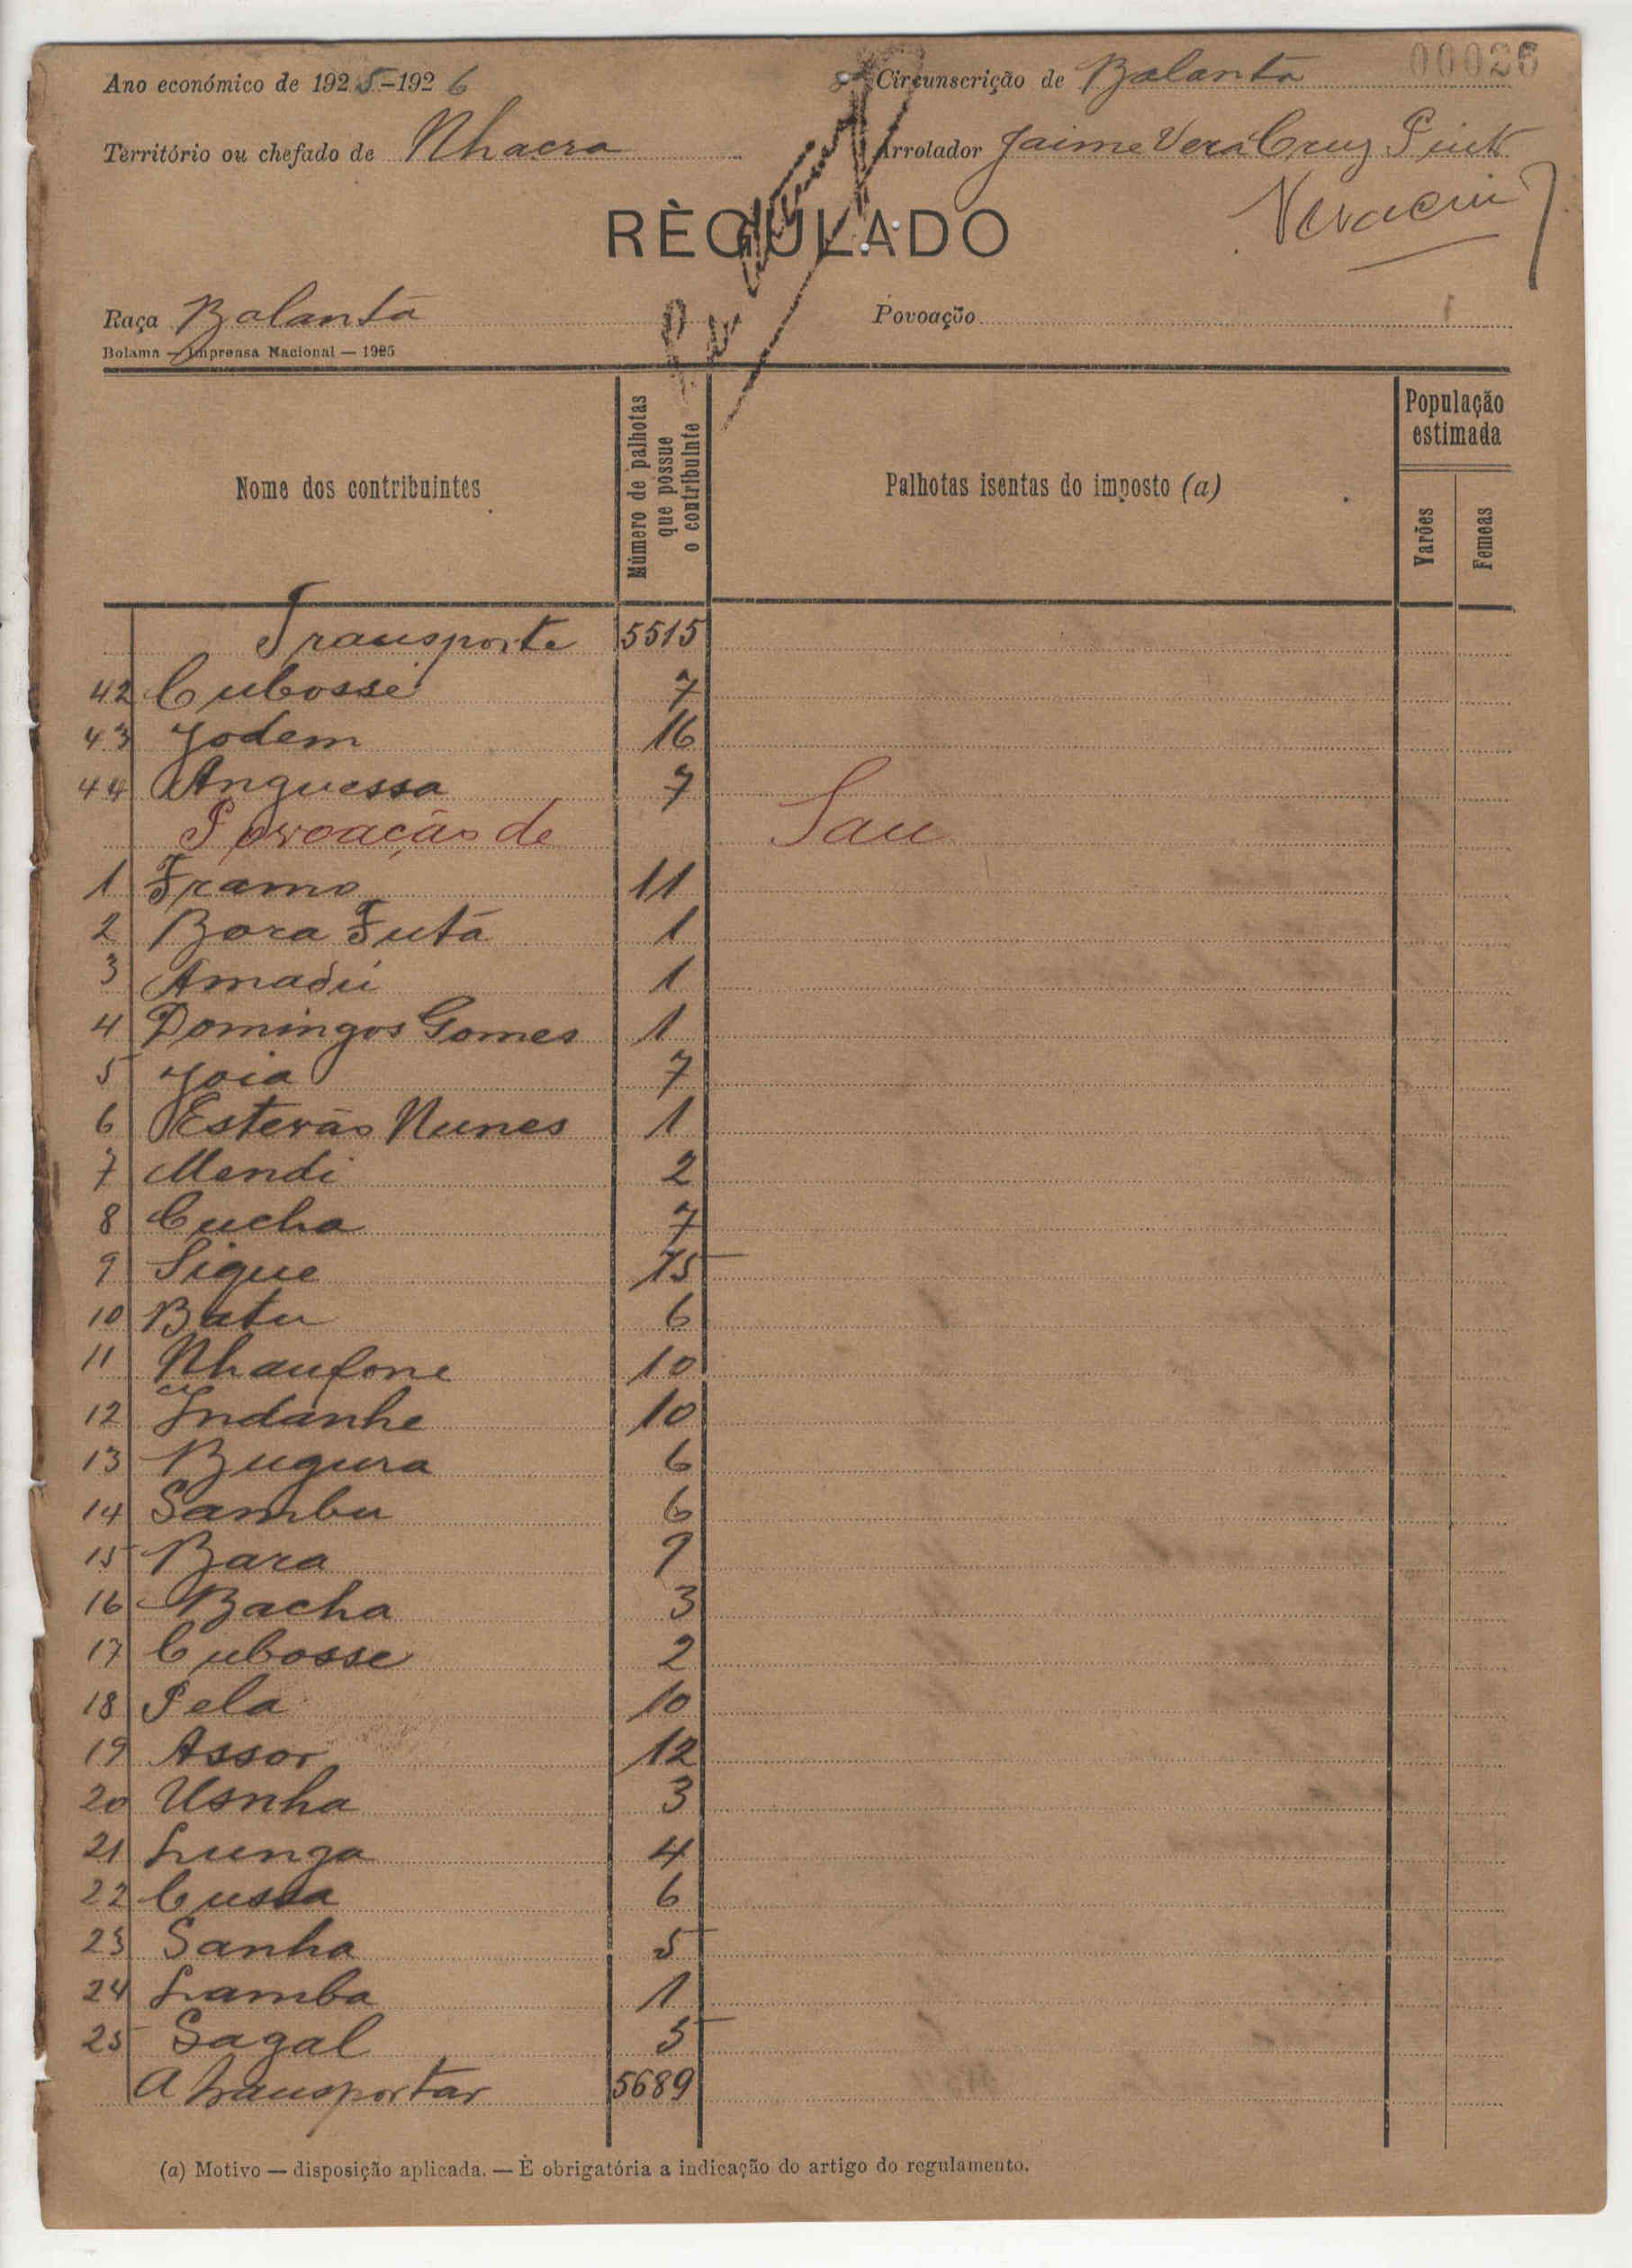 00026
Ano económico de 1925-1926
Circunscrição de Balanta
Território ou chefado de Nhacra
Arrolador Jaime Vera Cruz Pinto
RÈGULADO
Raça Balanta
Povoação
Bolama — Imprensa Nacional — 1925
Nome dos contribuintes
Número de palhotas que possue o contribuinte
Palhotas isentas do imposto (a)
População estimada
Varões
Femeas
Transporte 5515
42 Cubosse 7
43 Jodem 16
44 Anguessa 7
Povoação de Sau
1 Framo 11
2 Bora Futá 1
3 Amadú 1
4 Domingos Gomes 1
5 Joia 7
6 Estevão Nunes 1
7 Mendi 2
8 Cucha 7
9 Sigue 15
10 Batu 6
11 Nhaufone 10
12 Indanhe 10
13 Bugura 6
14 Sambu 6
15 Bara 9
16 Bacha 3
17 Cubosse 2
18 Pela 10
19 Assor 12
20 Usnha 3
21 Lunga 4
22 Cussa 6
23 Sanha 5
24 Lamba 1
25 Sagal 5
A transportar 5689
(a) Motivo — disposição aplicada. — È obrigatória a indicação do artigo do regulamento.